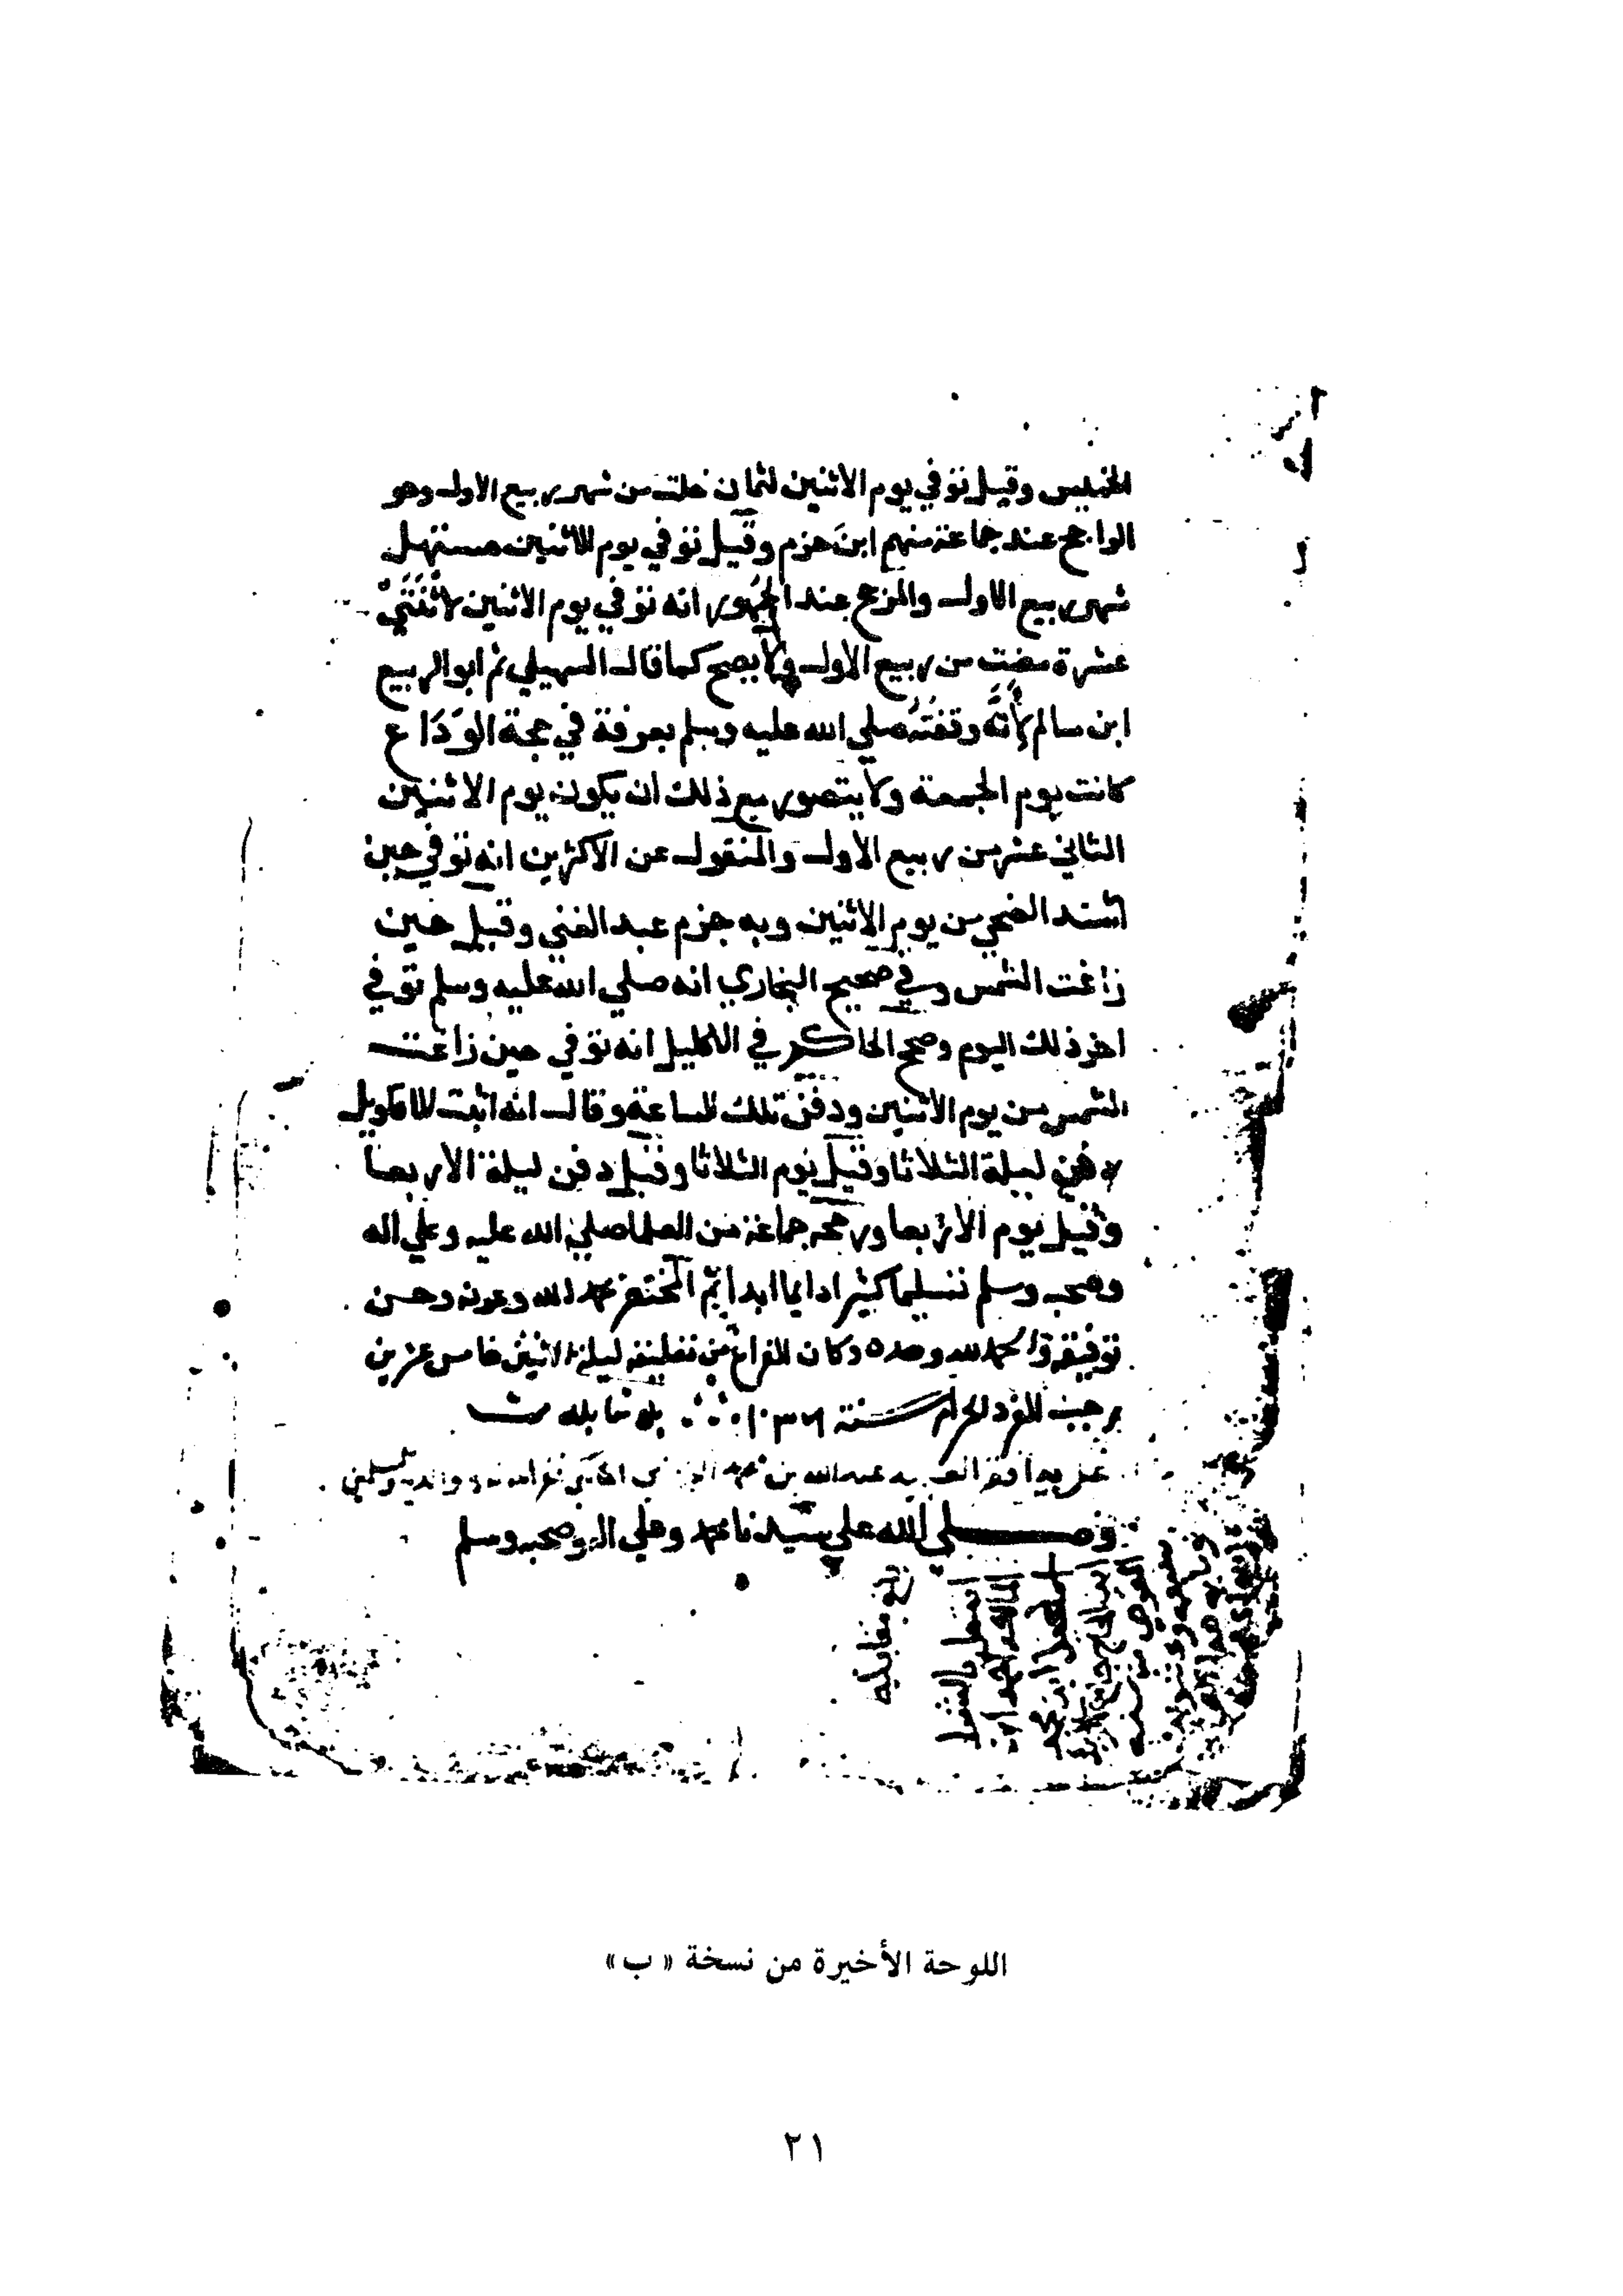 الخميس وقيل توفي يوم الاثنين لثمان خلت من شهر ربيع الاول وهو
الراجح عند جماعة منهم ابن حزم وقيل توفي يوم الاثنين مستهل
شهر ربيع الاول والمرجح عند الجمهور انه توفي يوم الاثنين لاثنتي
عشرة مضت من ربيع الاول ولا يصح كما قال السهيلي ثم ابو الربيع
ابن سالم لأنَّ وقفتَه صلي الله عليه وسلم بعرفة في حجة الوَدَاع
كانت يوم الجمعة ولا يتصور مع ذلك ان يكون يوم الاثنين
الثاني عشر من ربيع الاول والمنقول عن الاكثرين انه توفي حين
اشتد الضحي من يوم الاثنين وبه جزم عبد الغني وقيل حين
زاغت الشمس وفي صحيح البخاري انه صلي الله عليه وسلم توفي
اخر ذلك اليوم وصحح الحاكم في الاكليل انه توفي حين زاغت
الشمس من يوم الاثنين ودفن تلك الساعة وقال انه اثبت الاقاويل
دفن ليلة الثلاثا وقيل يوم الثلاثا وقيل دفن ليلة الاربعا
وقيل يوم الاربعا ورجحه جماعة من العلما صلي الله عليه وعلي اله
وصحبه وسلم تسليما كثيرا دايما ابدا تم المختصر بحمد الله وعونه وحسن
توفيقه والحمد لله وحده وكان الفراغ من تعليقه ليلة الاثنين خامس عشرين
رجب الفرد الحرام سنة ١٠٣٦ بلغ مقابله
علي يد افقر عبد الله بن محمد غفر الله له ولوالديه
وصلي الله علي سيدنا محمد وعلي اله وصحبه وسلم
مقابله
اللوحة الأخيرة من نسخة « ب »
٢١